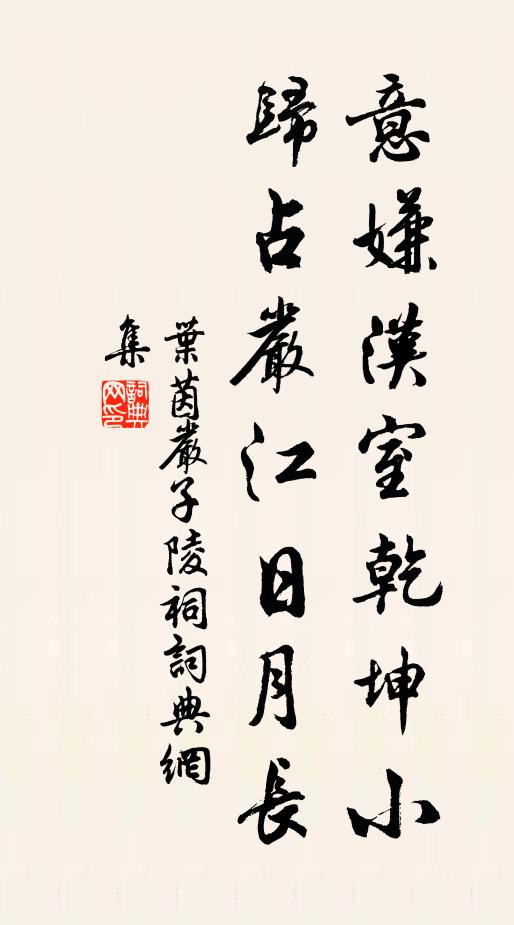 意嫌漢室乾坤小
歸占嚴江日月長
葉茵嚴子陵祠詞典網
集
詞典
網印